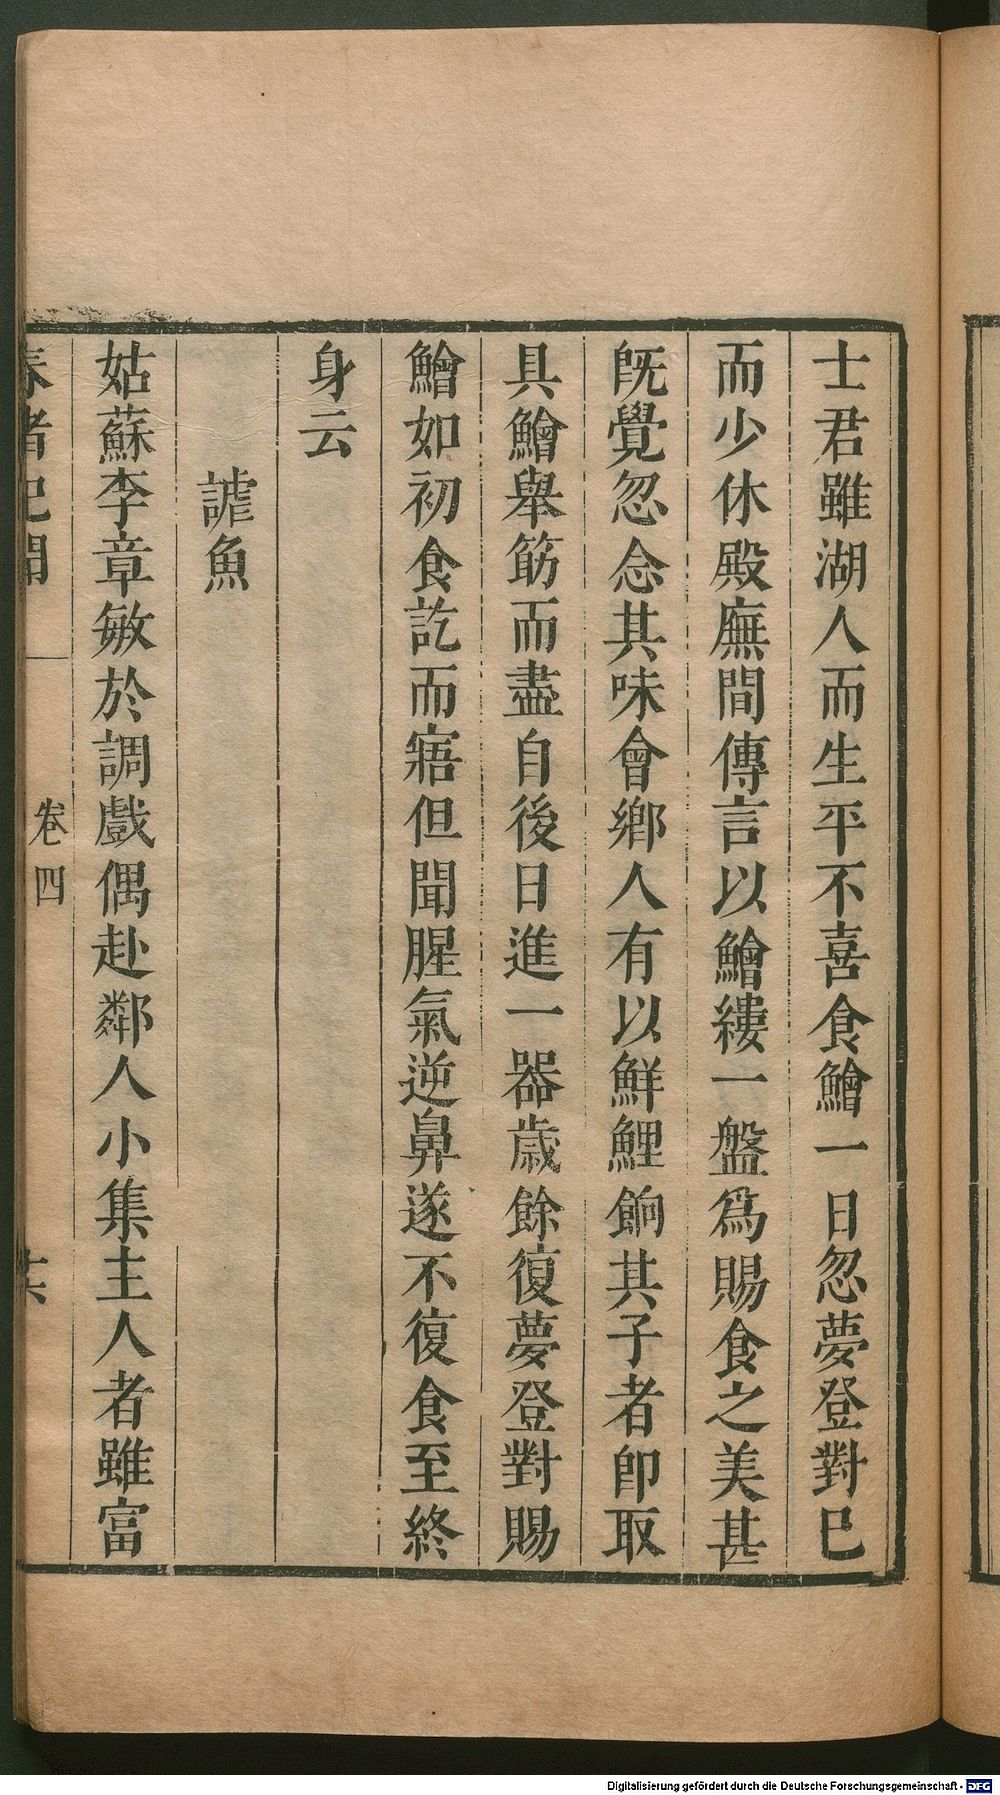 士君雖湖人而生平不喜食鱠一日忽夢登對已
而少休殿廡間傳言以鱠縷一盤爲賜食之美甚
旣覺忽念其味會鄉人有以鮮鯉餉其子者卽取
具鱠舉筯而盡自後日進一器歲餘復夢登對賜
鱠如初食訖而寤但聞腥氣逆鼻遂不復食至終
身云
謔魚
姑蘇李章敏於調戲偶赴鄰人小集主人者雖富
春渚紀聞 卷四
Digitalisierung gefördert durch die Deutsche Forschungsgemeinschaft - DFG